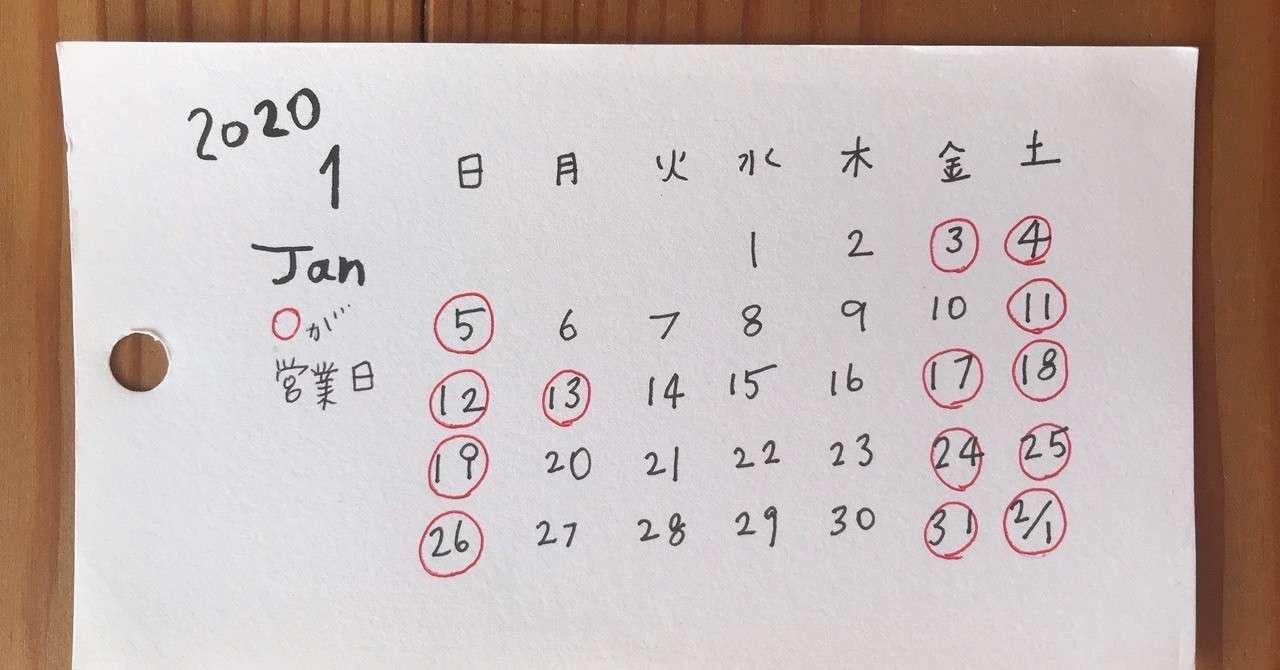 2020
1
Jan
○が…
営業日
日 月 火 水 木 金 土
1 2 3 4
5 6 7 8 9 10 11
12 13 14 15 16 17 18
19 20 21 22 23 24 25
26 27 28 29 30 31 2/1